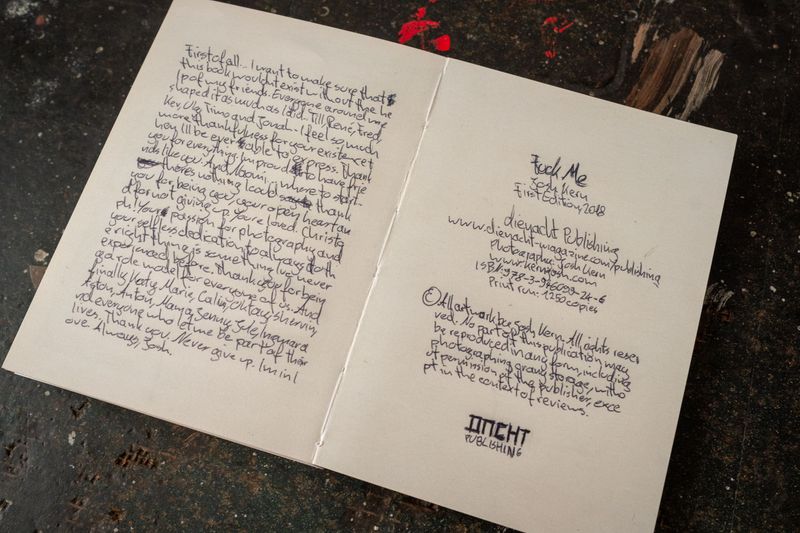 First of all... I want to make sure that
this book wouldn't exist without the he
lp of my friends. Everyone around me
shaped it as much as I did. Till, René, Fred,
Kev, Ole, Timo and Jonah - I feel so much
more thankfulness for your existence t
hen I'll be ever able to express. Thank
you for everything, im proud to have frie
nds like you. And Naomi... where to start -
theres nothing I could thank
you for being you, your open heart an
d for not giving up. You're loved. Christo
ph! Your passion for photography and
your selfless dedication to always do th
e right thing is something I've never
experienced before. Thank you for being
a role model for everyone of us. And
finally Katy, Marie, Calin, Oktay, Shervin,
Aston, Anton, Mama, Jenny, Jule, a
nd everyone who let me be part of their
lives, Thank you. Never give up. Im in l
ove. Always, Josh.
Fuck Me
Josh Kern
First Edition, 2018
dienacht Publishing
www.dienacht-magazine.com/publishing
Photographs: Josh Kern
www.kernjosh.com
ISBN: 978-3-946099-24-6
Print run: 1250 copies
© All artwork by Josh Kern. All rights reser
ved. No part of this publication may
be reproduced in any form, including
photographing or any storage, witho
ut permission of the publisher, exce
pt in the context of reviews.
DNCHT
PUBLISHING